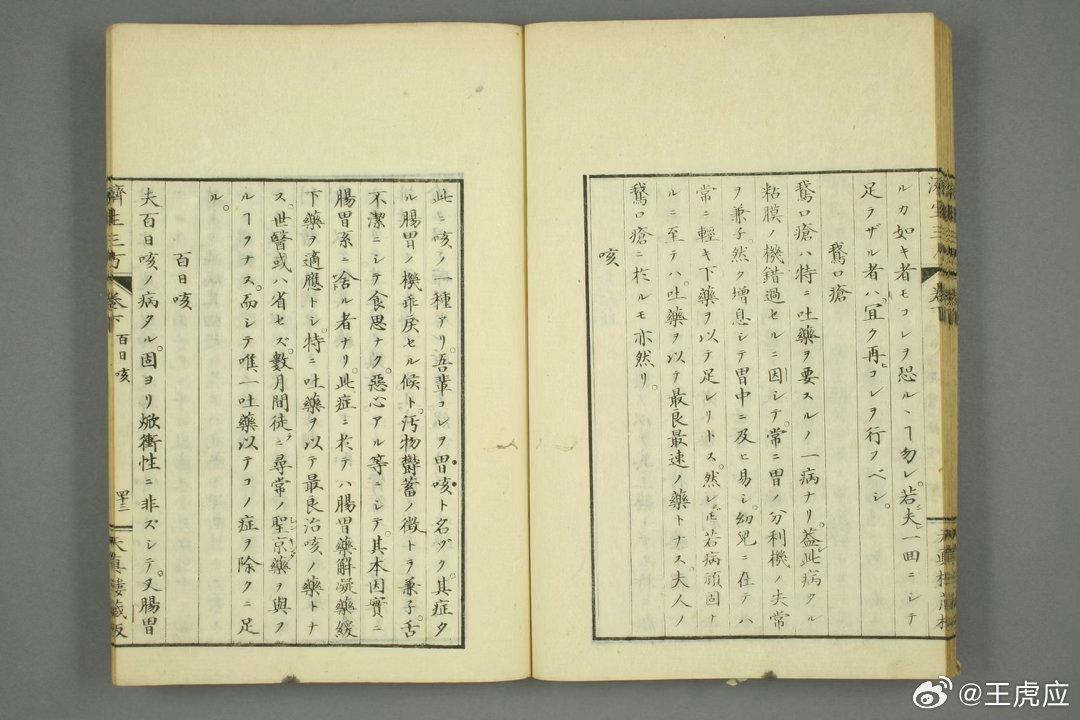 ルカ如キ者モコレヲ恐ルヽヿ勿レ。若夫一回ニシテ
足ラザル者ハ宜ク再ヒコレヲ行フベシ。
鵞口瘡
鵞口瘡ハ特ニ吐藥ヲ要スルノ一病ナリ。蓋此病タル
粘膜ノ機錯過セルニ因シテ。常ニ胃ノ分利機ノ失常
ヲ兼子。然ク增息シテ胃中ニ及ヒ易シ。幼兒ニ在テハ
常ニ輕キ下藥ヲ以テ足レリトス。然レ𪜈若病頑固ナ
ルニ至テハ。吐藥ヲ以テ最良最速ノ藥トナス。大人ノ
鵞口瘡ニ於ルモ亦然リ。
咳
濟生三方
卷下
百日咳
四十三
天眞樓藏板
此ニ咳ノ一種アリ。吾輩コレヲ胃咳ト名ヅク。其症タ
ル腸胃ノ機乖戾セル候ト。汚物鬱蓄ノ徵トヲ兼子。舌
不潔ニシテ食思ナク。惡心アル等ニシテ。其本因實ニ
腸胃系ニ舍ル者ナリ。此症ニ於テハ腸胃藥解凝藥緩
下藥ヲ適應トシ。特ニ吐藥ヲ以テ最良治咳ノ藥トナ
ス。世醫或ハ省セズ。數月間徒ニ尋常ノ聖京藥ヲ與フ
ルヿヲナス。而シテ唯一吐藥以テコノ症ヲ除クニ足
ル。
百日咳
夫百日咳ノ病タル。固ヨリ焮衝性ニ非ズシテ。又腸胃
@王虎应